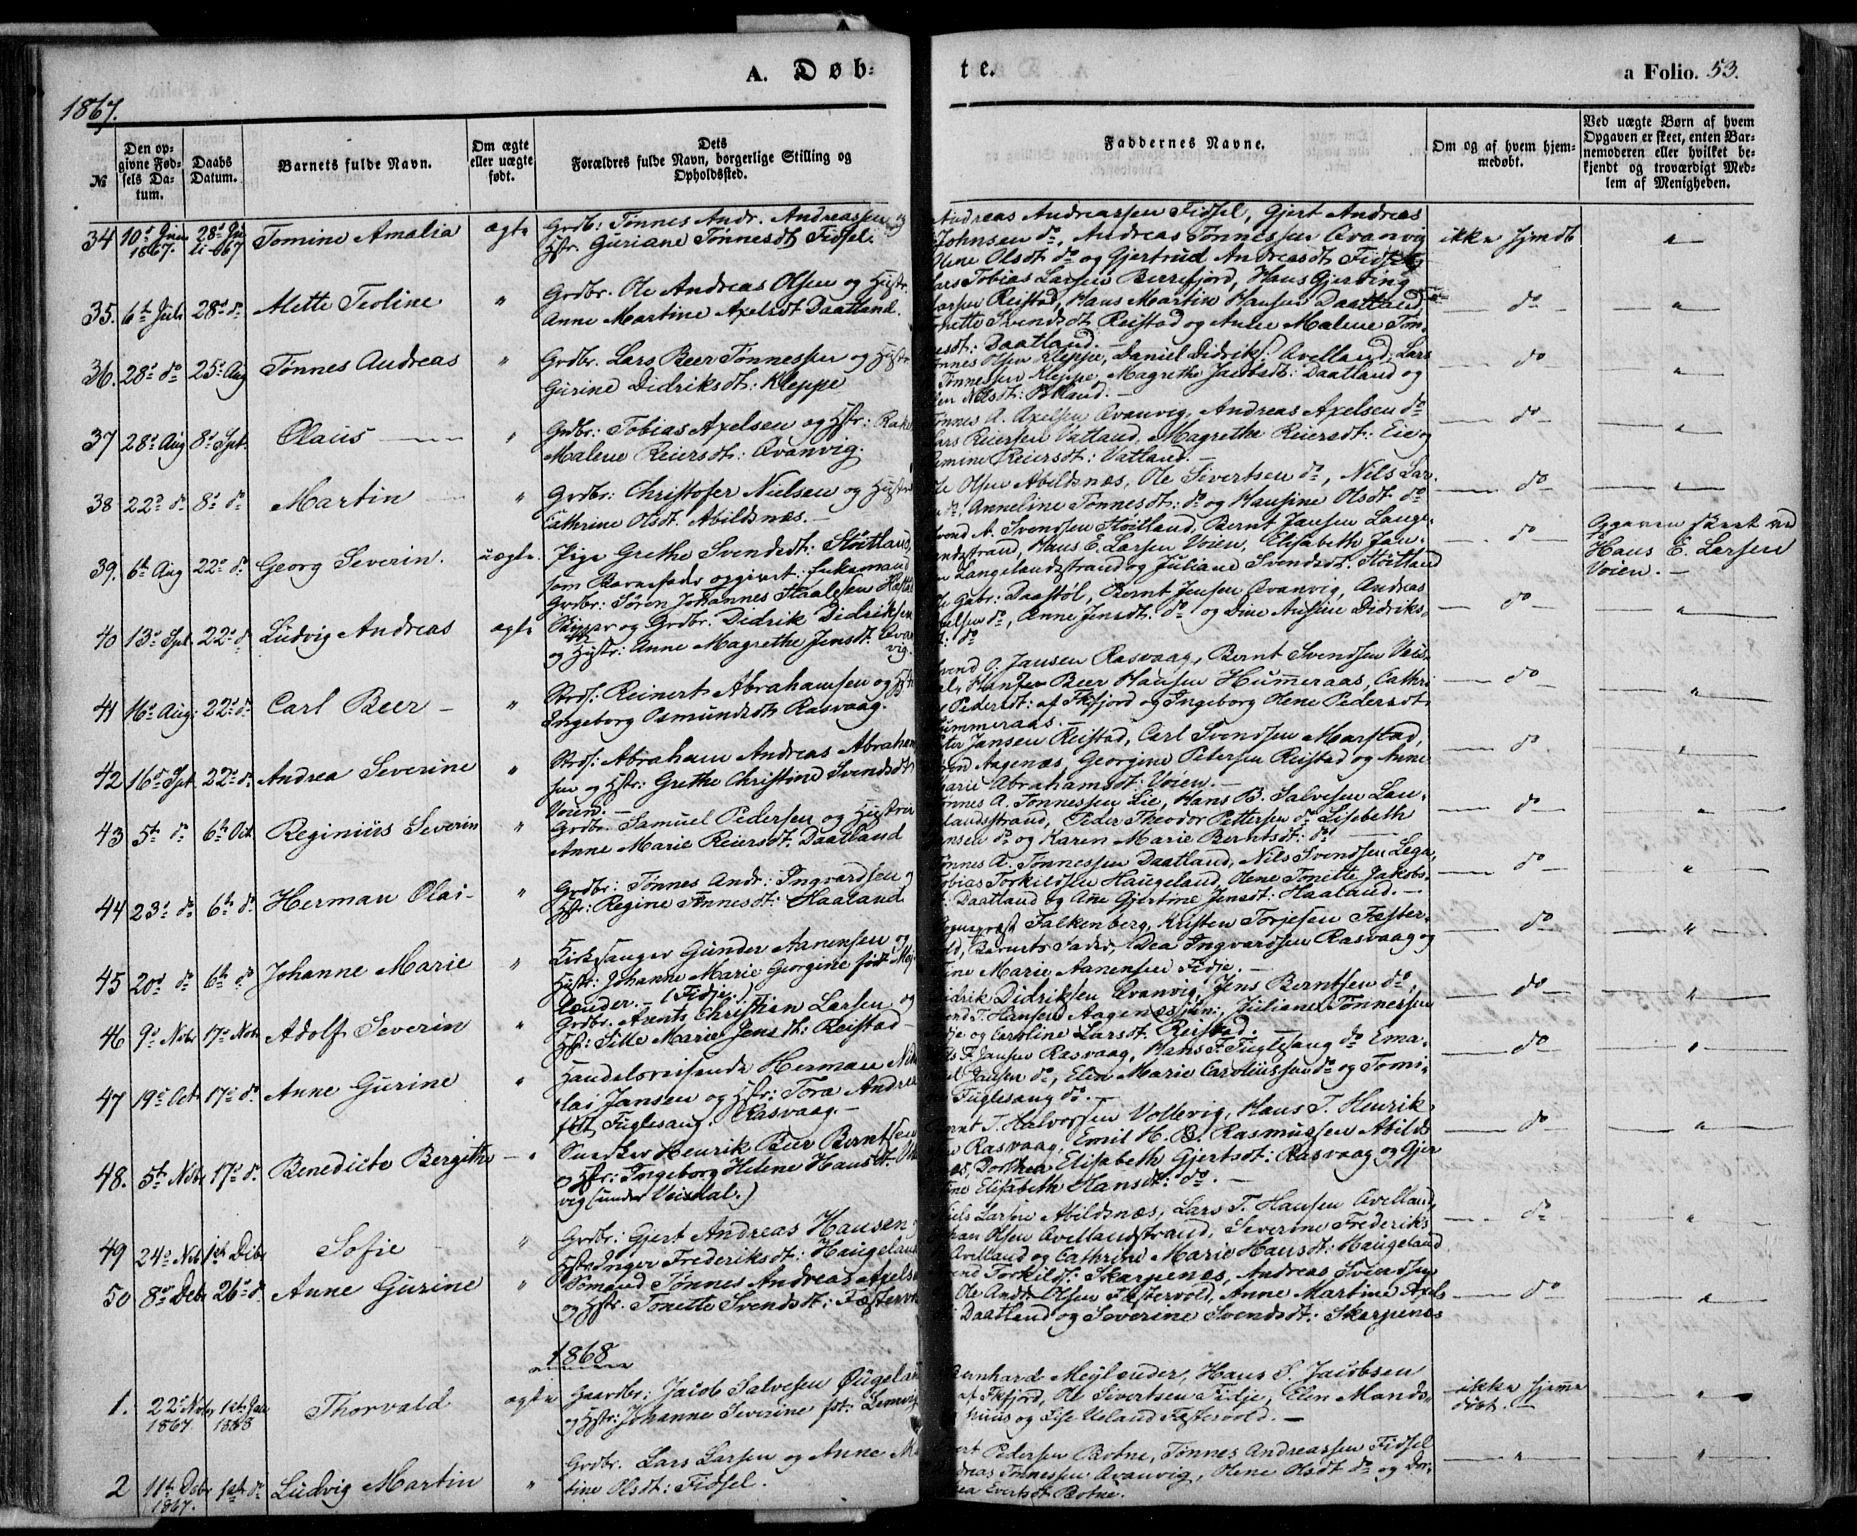 A. Døb-
te.
a Folio. 53.
1867.
№
Den op-
givne Fød-
sels Da-
tum.
Daabs
Datum.
Barnets fulde Navn.
Om ægte
eller uægte
født.
Dets
Forældres fulde Navn, borgerlige Stilling og
Opholdssted.
Faddernes Navne.
Om og af hvem hjem-
medøbt.
Ved uægte Børn af hvem
Opgaven er skeet, enten Bar-
nemoderen eller hvilket be-
kjendt og troværdigt Med-
lem af Menigheden.
34 10de 1867. 28de Juli 1867 Tomine Amalia ægte
Grdb: Tønnes Andr. Andreassen og
Hstr. Guriane Tønnesdt. Fidsel.
Andreas Andreassen Fidsel, Gjert Andreas
Johnsen do, Andreas Tønnessen Qvanvig
Olene Olsdt do og Gjertrud Andreasdt Fidsel
ikke hjmdb "
35. 6te Juli 28de do Mette Teoline "
Grdbr. Ole Andreas Olsen og Hustr.
Anne Martine Axelsdt Daatland.
Lars Tobias Larsen Berrefjord, Hans Gjerting
Larsen Reistad, Hans Martin Hansen Daatland,
Tonette Svendsdt Reistad og Anne Malene Tøn-
nesdt: Daatland. —
do "
36. 28de do 25de Aug Tønnes Andreas "
Grdbr. Lars Beer Tønnessen og Hustr
Gurine Didriksdt: Kleppe
Tønnes Olsen Kleppe, Daniel Didriks: Avelland, Lars
Tønnessen Kleppe, Magrethe Jacobsdt: Daatland og
Nilsdt:
do "
37 28de Aug 8de Spt. Olaus "
Grdbr: Tobias Axelsen og Hstr: Rakel
Malene Reiersdt: Qvanvig.
Tønnes A. Axelsen Qvanvig, Andreas Axelsen do
Lars Reiersen Vatland, Magrethe Reiersdt: Eie og
Reiersdt: Vatland —
do "
38 22de do 8de do Martin "
Grdbr: Christofer Nielsen og Hustr
Cathrine Olsdt. Abildsnæs. —
Ole Olsen Abildsnæs, Ole Sivertsen do, Nils Lar-
Anneline Tønnesdt: do og Hansine Olsdt do
do "
39. 6te Aug 22de do Georg Severin. uægte
Pige Grethe Svendsdt: Støitland,
som Barnefader opgivet: Enkemand
Grdbr: Søren Johannes Staalesen
Svend A. Svendsen Støitland, Bernt Jansen Lange-
landsstrand, Hans E. Larsen Voien, Elisabeth Jan-
Langelandsstrand og Juliane Svendsdt: Støitland
do
Opgaven skeet ved
Hans E. Larsen
Voien. —
40 13de Spt 22de do Ludvig Andreas ægte
Skipper og Grdbr: Didrik Didriksen
og Hustr: Anne Magrethe Jensdt. Qvan
vig.
Ole Gabr: Daastøl, Bernt Jensen Qvanvig, Andreas
do, Anne Jensdt: do og Dine Ansine Didriks-
do
do "
41 16de Aug: 22de do Carl Beer — "
Strds: Reinert Abrahamsen og Hst
Ingeborg Osmundsdt Rasvaag.
Svend J. Jansen Rasvaag, Bernt Svendsen Veis-
dal, Hans Beer Hansen Hummeraas, Cathri
Pedersdt: af Flkfjord og Ingeborg Olene Pedersdt
Hummeraas. —
do "
42 16de Spt 22de do Andrea Severine "
Strds: Abraham Andreas Abraham
sen og Hstr: Grethe Christine Svendsdt
Voien. —
Peter Jansen Reistad, Carl Svendsen Marstad,
Aagenæs, Georgine Petersen Reistad og Anne
Marie Abrahamsdt: Voien. —
do "
43 5te do 6te Oct Reginius Severin "
Grdbr. Samuel Pedersen og Hustru
Anne Marie Reiersdt. Daatland
Tønnes A. Tønnessen Lie, Hans B. Salvesen Lan-
gelandsstrand, Peder Theodor Pettersen do Lisebeth
Jansen do og Karen Marie Berntsdt: do
do "
44 23de do 6te do Herman Olai- "
Grdbr: Tønnes Andr: Ingvardsen og
Hstr: Regine Tønnesdt: Haaland
Tønnes A. Tønnessen Daatland, Nils Svendsen Lega,
Tobias Torkildsen Haugeland, Olene Tonette Jakobs-
Daatland og Ane Gjertine Jensdt: Haaland. —
do "
45 20de do 6te do Johanne Marie "
Kirkesanger Gunder Aanensen og
Hustr: Johanne Marie Georgine født Mej-
lænder. — (Fidje.)
Sognepræst Falkenberg, Kristen Torjesen Fæster-
vold, Barnets Fader, Dea Ingvardsen Rasvaag og
Marie Aanensen Fidje. —
do "
46 9de Nobr 17de Nobr Adolf Severin "
Grdbr. Arents Christian Larsen og
Hst: Sille Marie Jensdt: Reistad —
Didrik Didriksen Qvanvig, Jens Berntsen do,
T. Hansen Aagenæs, Juliane Tønnessen
Fidje og Caroline Larsdt. Reistad. —
do "
47 19de Octr 17de do Anne Gurine "
Handelsreisende Herman Nico-
lai Jansen og Hstr: Tora Andrea
født Fuglesang. Rasvaag. —
F. Jansen Rasvaag, Hans F. Fuglesang do Ema-
nuel Jansen do, Elen Marie Caroliussen do og Tomi-
ne Fuglesang do. —
do "
48. 5te Nobr 17de do Benedicte Bergithe — "
Snedker Henrik Beer Berntsen
og Hstr: Ingeborg Helene Hansdt.
vig (under Veisdal.)
Bernt T. Halvorsen Vollevig, Hans T. Henrik
Rasvaag, Emil H. O. Rasmussen Abilds
næs, Dorthea Elisabeth Gjertsdt: Rasvaag og Gjer
tine Elisabeth Hansdt: do. —
do "
49 24de Nobr 1ste Dcbr Sofie "
Grdbr: Gjert Andreas Hansen og
Hstr Inger Frederiksdt: Haugeland
Niels Larsen Abildsnæs, Lars T. Hansen Avelland,
Olsen Avellandstrand, Severine Frederiks
Avelland og Cathrine Marie Hansdt: Haugeland
do "
50 8de Debr 26de do Anne Gurine "
Sømand Tønnes Andreas Axelsen
og Hstr. Tonette Svendsdt: Fæstervold
Svend Torkilds: Skarpenes, Andreas Svendsen
do, Ole Andr Olsen Fæstervold, Anne Martine Axels
Daatland og Severine Svendsdt: Skarpenes
do "
1868
1. 22de Nobr 1867. 1ste Jan 1868 Thorvald ægte
Gaardbr: Jacob Salvesen Øugeland
og Hstr: Johanne Severine fdt:
Bernhard Mejlænder, Hans S. Jacobsen
af Flkfjord, Ole Sivertsen Fidje, Elen Mands-
og Lise Ueland Fæstervold. —
ikke hjemme
døbt. — "
2 11te Debr 1867. 1ste do Ludvig Martin "
Grdbr. Lars Larsen og Anne Mar
tine Olsdt: Fidsel.
Pedersen Botne, Tønnes Andreassen Fidsel
Andreas Tønnessen Qvanvig, Olene Olsdt do og Dor-
thea Evertsdt Botne.
" "